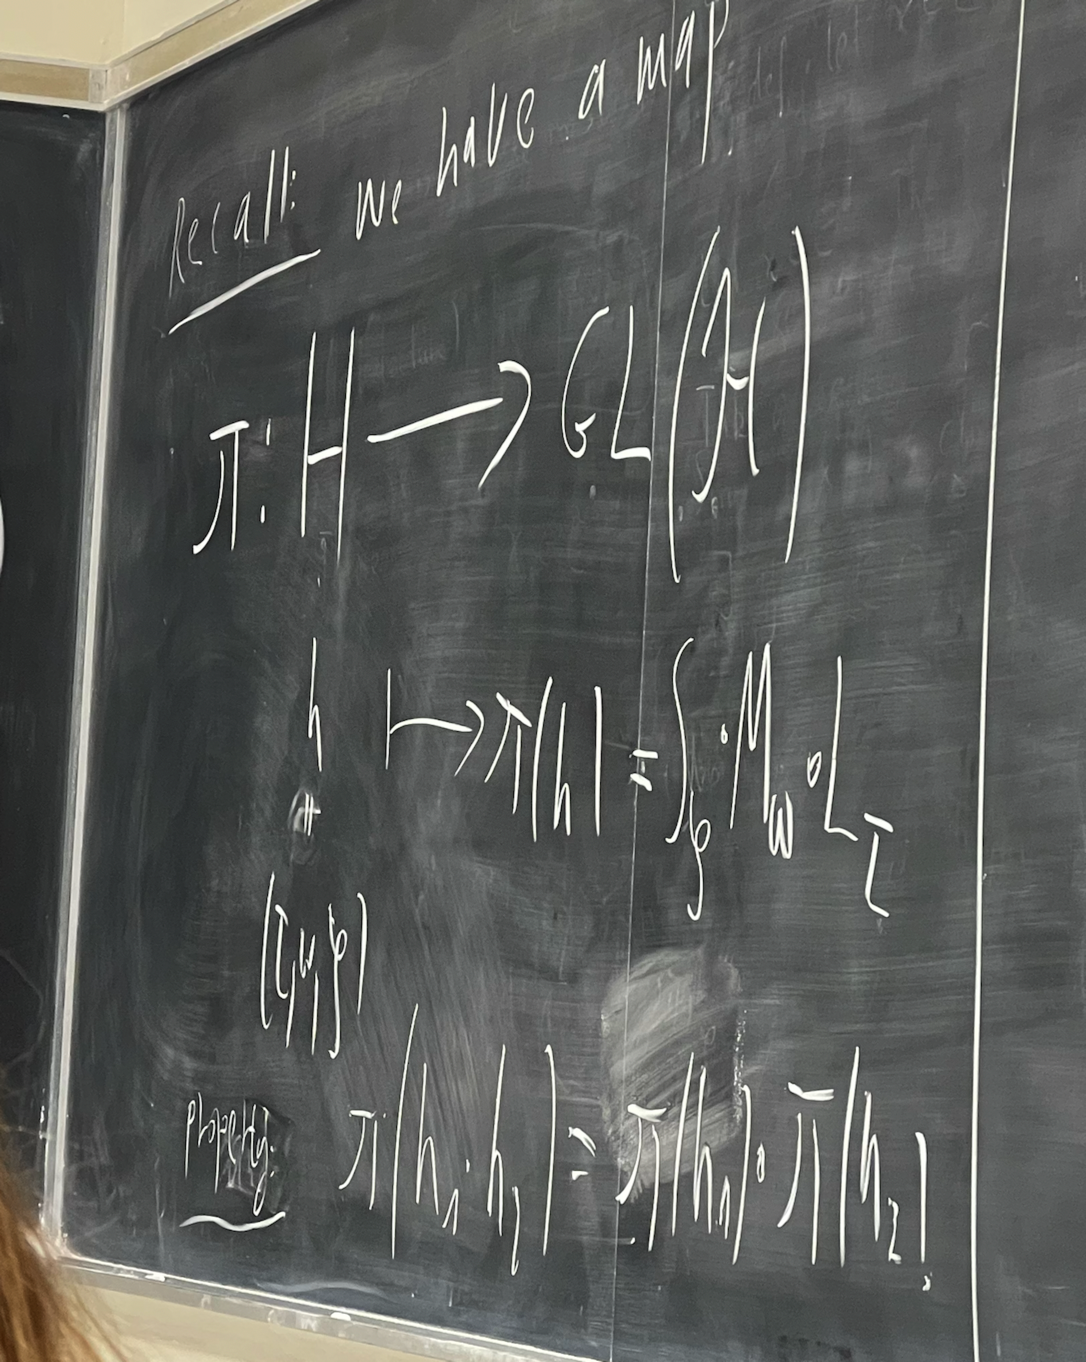 Recall: We have a map
π: H ⟶ GL(ℋ)
h ⟼ π(h) = ∫_φ · M_ω ∘ L_τ
=
(τ, ω, φ)
Property: π(h₁ · h₂) = π(h₁) ∘ π(h₂)